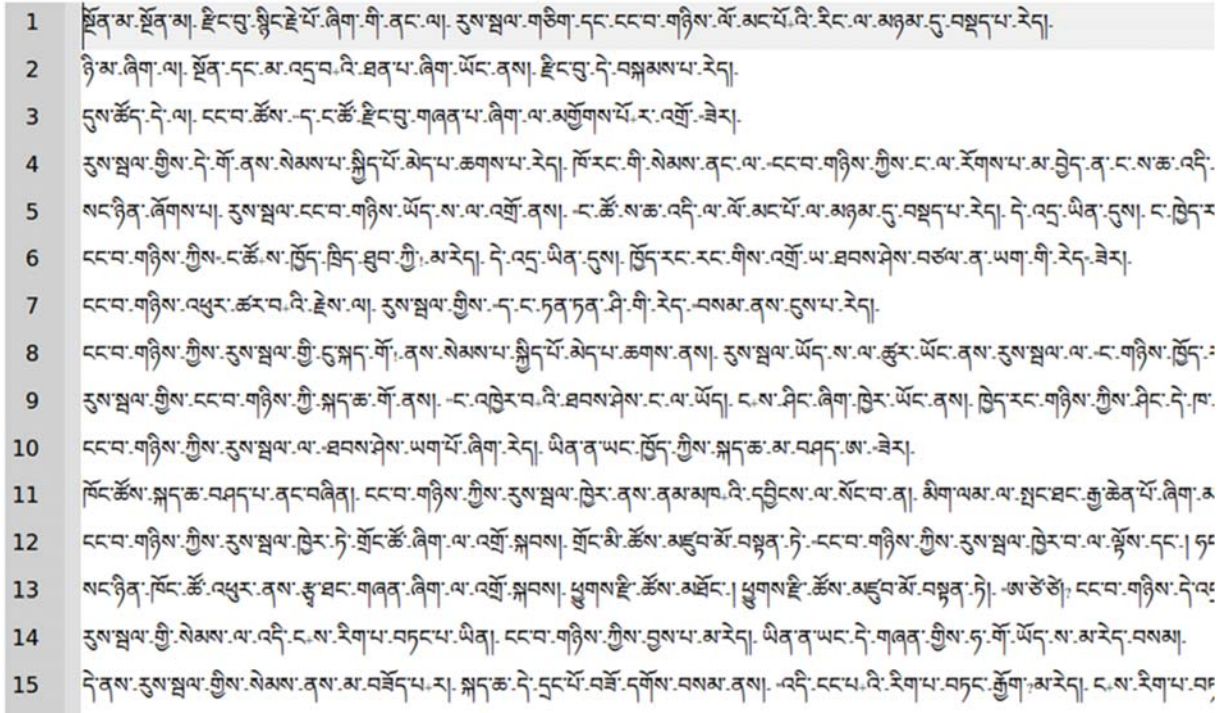 1 སྔོན་མ་.སྔོན་མ།. རྫིང་བུ་.སྙིང་རྗེ་པོ་.ཞིག་.གི་.ནང་.ལ།. རུས་སྦལ་.གཅིག་.དང་.ངང་བ་.གཉིས་.ལོ་.མང་པོ.འི་.རིང་.ལ་.མཉམ་དུ་.བསྡད་པ་.རེད།.
2 ཉི་མ་.ཞིག་.ལ།. སྔོན་.དང་.མ་.འདྲ་བ.འི་.ཐན་པ་.ཞིག་.ཡོང་.ནས།. རྫིང་བུ་.དེ་.བསྐམས་པ་.རེད།.
3 དུས་ཚོད་.དེ་.ལ།. ངང་བ་.ཚོས་.-ད་.ང་ཚོ་.རྫིང་བུ་.གཞན་པ་.ཞིག་.ལ་.མགྱོགས་པོ.ར་.འགྲོ་.-ཟེར།.
4 རུས་སྦལ་.གྱིས་.དེ་.གོ་.ནས་.སེམས་པ་.སྐྱིད་པོ་.མེད་པ་.ཆགས་པ་.རེད།. ཁོ་རང་.གི་.སེམས་.ནང་.ལ་.-ངང་བ་.གཉིས་.ཀྱིས་.ང་.ལ་.རོགས་པ་.མ་.བྱེད་.ན་.ང་.ས་ཆ་.འདི་.
5 སང་ཉིན་.ཞོགས་པ།. རུས་སྦལ་.ངང་བ་.གཉིས་.ཡོད་.ས་.ལ་.འགྲོ་.ནས།. -ང་.ཚོ་.ས་ཆ་.འདི་.ལ་.ལོ་.མང་པོ་.ལ་.མཉམ་དུ་.བསྡད་པ་.རེད།. དེ་.འདྲ་.ཡིན་.དུས།. ང་.ཁྱེད་ར
6 ངང་བ་.གཉིས་.ཀྱིས་-.ང་ཚོ.ས་.ཁྱོད་.ཁྲིད་.ཐུབ་.ཀྱི་.མ་རེད།. དེ་.འདྲ་.ཡིན་.དུས།. ཁྱོད་རང་.རང་.གིས་.འགྲོ་.ཡ་.ཐབས་ཤེས་.བཙལ་.ན་.ཡག་.གི་.རེད་-.ཟེར།.
7 ངང་བ་.གཉིས་.འཕུར་.ཚར་བ.འི་.རྗེས་.ལ།. རུས་སྦལ་.གྱིས་.-ད་.ང་.ཏན་ཏན་.ཤི་.གི་.རེད་.-བསམ་.ནས་.ངུས་པ་.རེད།.
8 ངང་བ་.གཉིས་.ཀྱིས་.རུས་སྦལ་.གྱི་.ངུ་སྐད་.གོ་.ནས་.སེམས་པ་.སྐྱིད་པོ་.མེད་པ་.ཆགས་.ནས།. རུས་སྦལ་.ཡོད་.ས་.ལ་.ཚུར་.ཡོང་.ནས་.རུས་སྦལ་.ལ་.-ང་.གཉིས་.ཁྱོད་.
9 རུས་སྦལ་.གྱིས་.ངང་བ་.གཉིས་.ཀྱི་.སྐད་ཆ་.གོ་.ནས།. -ང་.འཁྱེར་བ.འི་.ཐབས་ཤེས་.ང་.ལ་.ཡོད།. ང.ས་.ཤིང་.ཞིག་.ཁྱེར་.ཡོང་.ནས།. ཁྱེད་རང་.གཉིས་.ཀྱིས་.ཤིང་.དེ་.ཁ་.
10 ངང་བ་.གཉིས་.ཀྱིས་.རུས་སྦལ་.ལ་.-ཐབས་ཤེས་.ཡག་པོ་.ཞིག་.རེད།. ཡིན་ན་ཡང་.ཁྱོད་.ཀྱིས་.སྐད་ཆ་.མ་.བཤད་.ཨ་.-ཟེར།.
11 ཁོང་ཚོས་.སྐད་ཆ་.བཤད་པ་.ནང་བཞིན།. ངང་བ་.གཉིས་.ཀྱིས་.རུས་སྦལ་.ཁྱེར་.ནས་.ནམ་མཁ.འི་.དབྱིངས་.ལ་.སོང་བ་.ན།. མིག་ལམ་.ལ་.སྤང་ཐང་.རྒྱ་ཆེན་པོ་.ཞིག་.མ
12 ངང་བ་.གཉིས་.ཀྱིས་.རུས་སྦལ་.ཁྱེར་.ཏེ་.གྲོང་ཚོ་.ཞིག་.ལ་.འགྲོ་.སྐབས།. གྲོང་མི་.ཚོས་.མཛུབ་མོ་.བསྟན་.ཏེ་.-ངང་བ་.གཉིས་.ཀྱིས་.རུས་སྦལ་.ཁྱེར་བ་.ལ་.ལྟོས་.དང་.།
13 སང་ཉིན་.ཁོང་.ཚོ་.འཕུར་.ནས་.རྩྭ་ཐང་.གཞན་.ཞིག་.ལ་.འགྲོ་.སྐབས།. ཕྱུགས་རྫི་.ཚོས་.མཐོང་.། ཕྱུགས་རྫི་.ཚོས་.མཛུབ་མོ་.བསྟན་.ཏེ།. -ཨ་ཙི་ཙི།. ངང་བ་.གཉིས་.དེ་
14 རུས་སྦལ་.གྱི་.སེམས་.ལ་.འདི་.ང.ས་.རིག་པ་.བཏང་པ་.ཡིན།. ངང་བ་.གཉིས་.ཀྱིས་.བྱས་པ་.མ་རེད།. ཡིན་ན་ཡང་.དེ་.གཞན་.གྱིས་.ཧ་.གོ་.ཡོད་.ས་.མ་རེད་.བསམ།.
15 དེ་ནས་.རུས་སྦལ་.གྱིས་.སེམས་.ནས་.མ་.བཟོད་པ.ར།. སྐད་ཆ་.དེ་.དྲང་པོ་.བཟོ་.དགོས་.བསམ་.ནས།. -འདི་.ངང་པ.འི་.རིག་པ་.བཏང་.རྒྱོག་.མ་རེད།. ང.ས་.རིག་པ་.